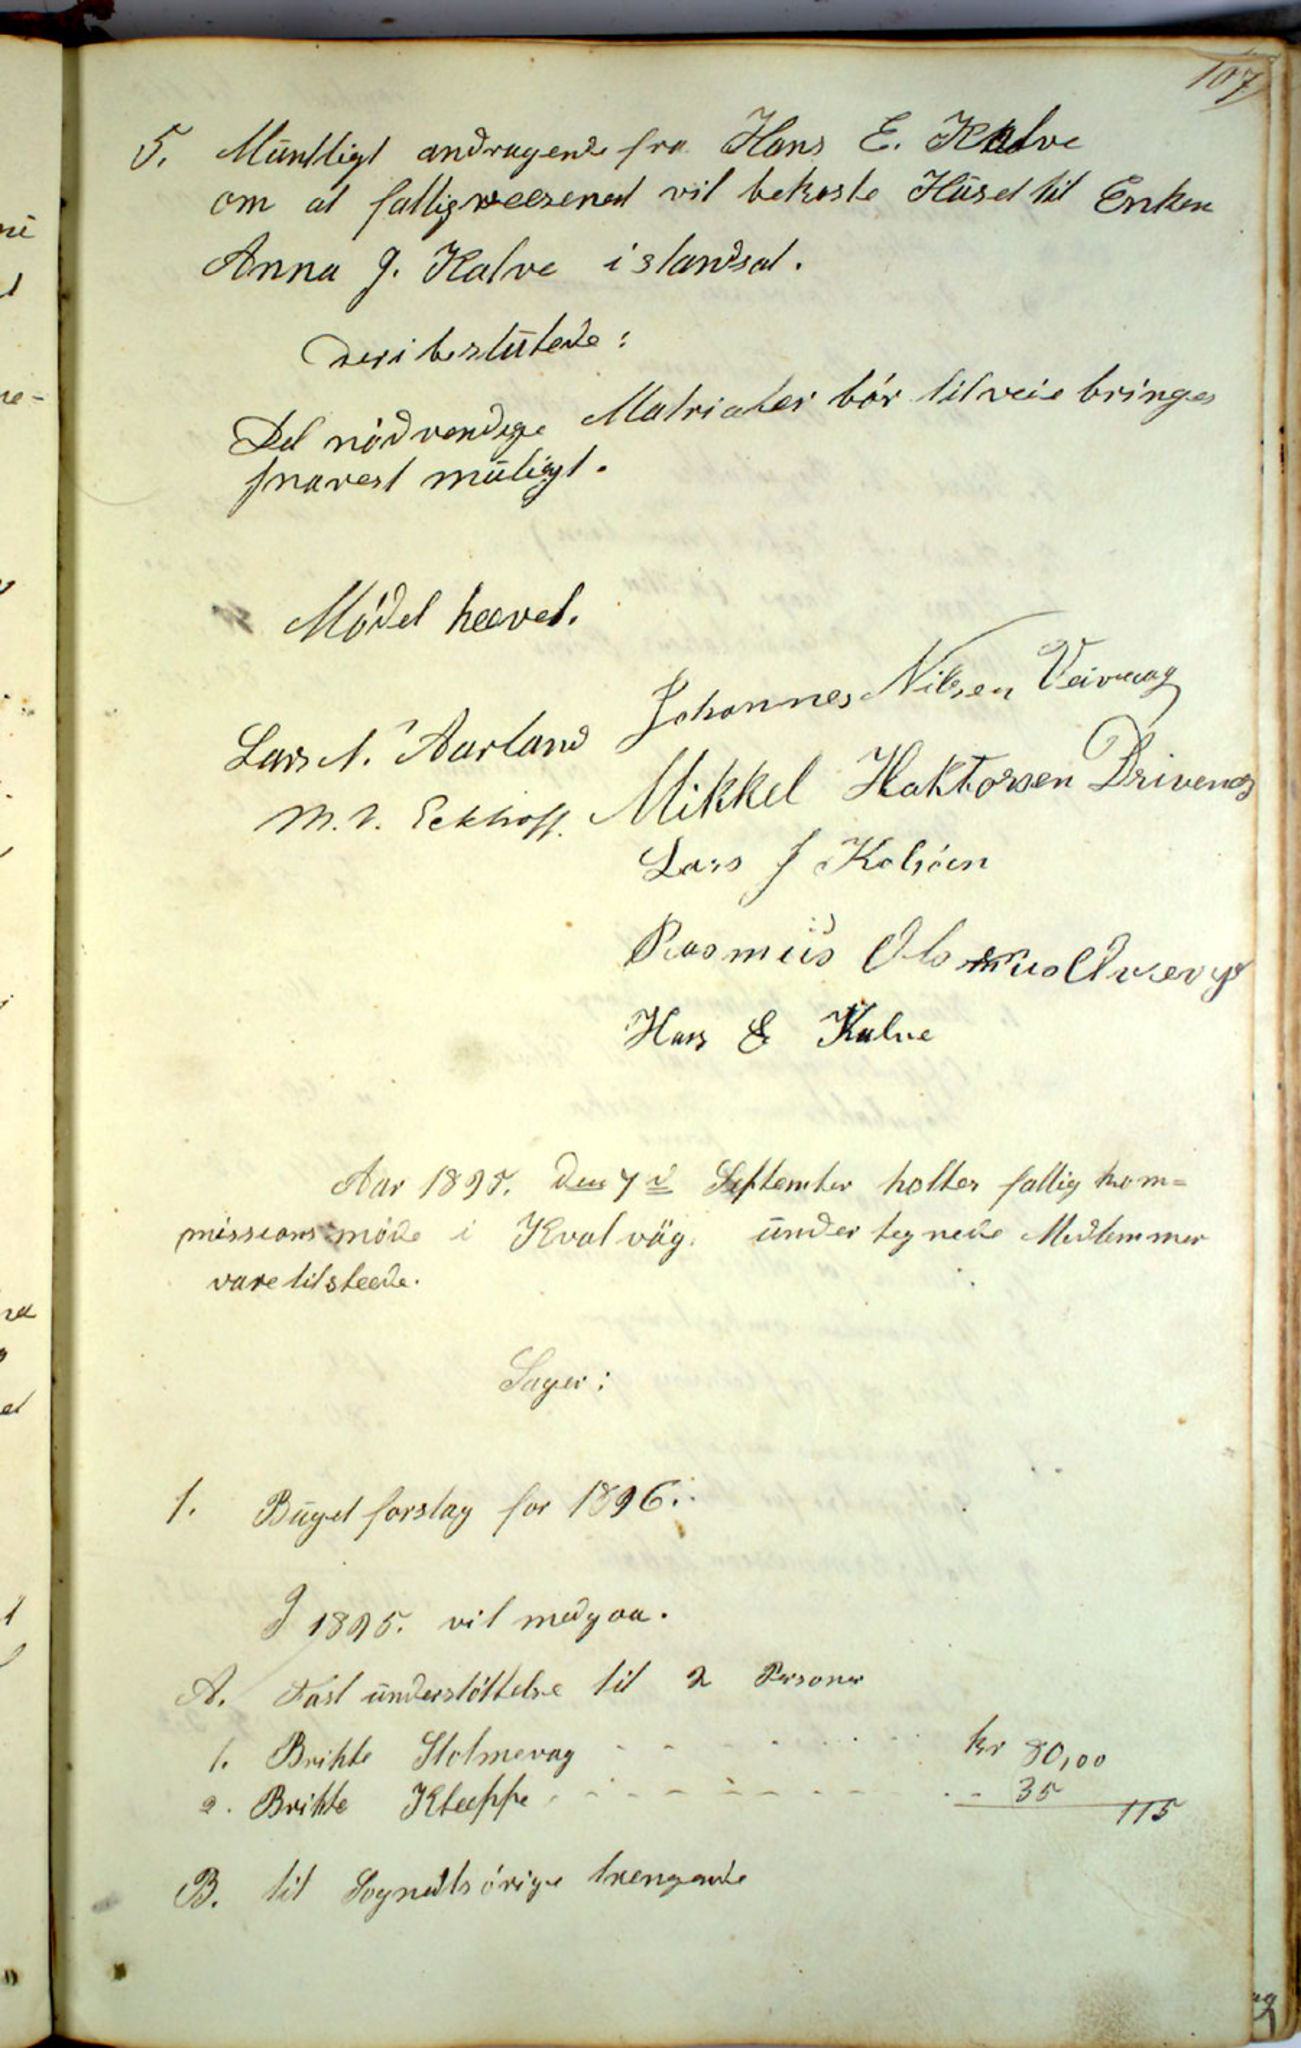 107
5. Müntligt andragende fra Hans E. Kalve
om at fattigveesenet vil bekoste Hüset til Enken
Anna J. Kalve istandsat.
Deribeslütede:
Det nödvendige Matrialer bör tilveie bringes
snarest müligt.
Mödet heevet.
Johannes Nilsen Veivaag
Lars N. Aarland
Mikkel Haktorsen Drivenes
M. V. Eckhoff.
Lars J Kolsöen
Rasmüs Olsen
Hans E Kalve
Aar 1895. den 7 d September holtes fattig kom=
missions möde i Kvalvåg. ündertegnede Medlemmer
vare tilsteede.
Sager:
1. Büget forslag for 1896.
I 1895. vil medgaa.
A. Fast ünderstöttelse til 2 Personer
1. Brihte Stolmevag - - - - - - kr 80,00
2. Brihte Kleppe - - - - - - - - 35
115
B. til Sognets örige trengende